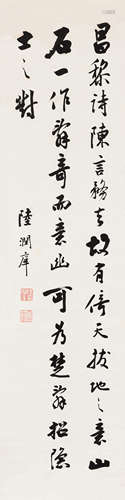 昌黎詩陳言務去故有倚天拔地之意山
石一作辭奇而意幽可為楚辭招隱
士之對
陸潤庠